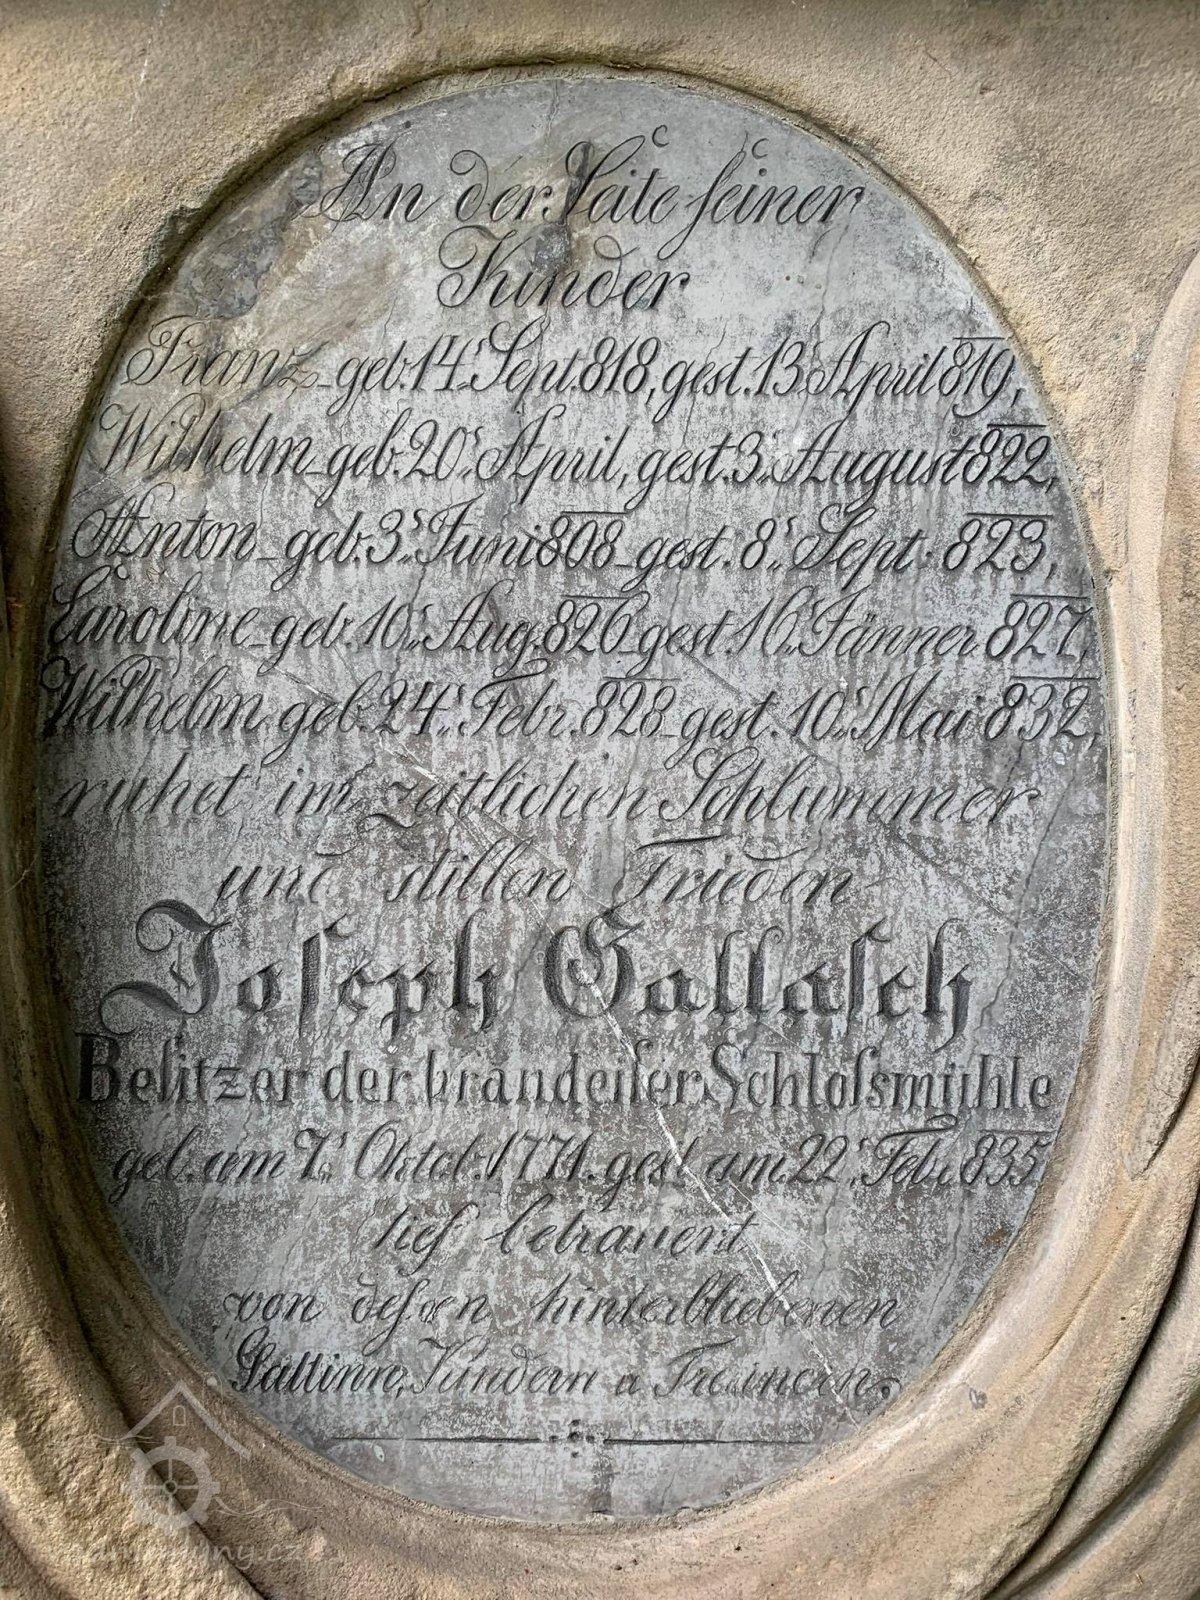 An der Seite seiner
Kinder
Franz geb. 14. Sept. 818, gest. 13. April 819,
Wilhelm geb. 20. April, gest. 3. August 822,
Anton geb. 3. Juni 808 gest. 8. Sept. 823,
Caroline geb. 10. Aug. 826 gest. 16. Jänner 827,
Wilhelm geb. 24. Febr. 828 gest. 10. Mai 832,
ruhet im zeitlichen Schlummer
und stillen Frieden
Joseph Gallasch
Besitzer der brandeiser Schlossmühle
geb. am 7. Oktob. 1771. gest. am 22. Feb. 835
tief betrauert
von dessen hinterbliebenen
Gattinn, Kindern u Freunden.